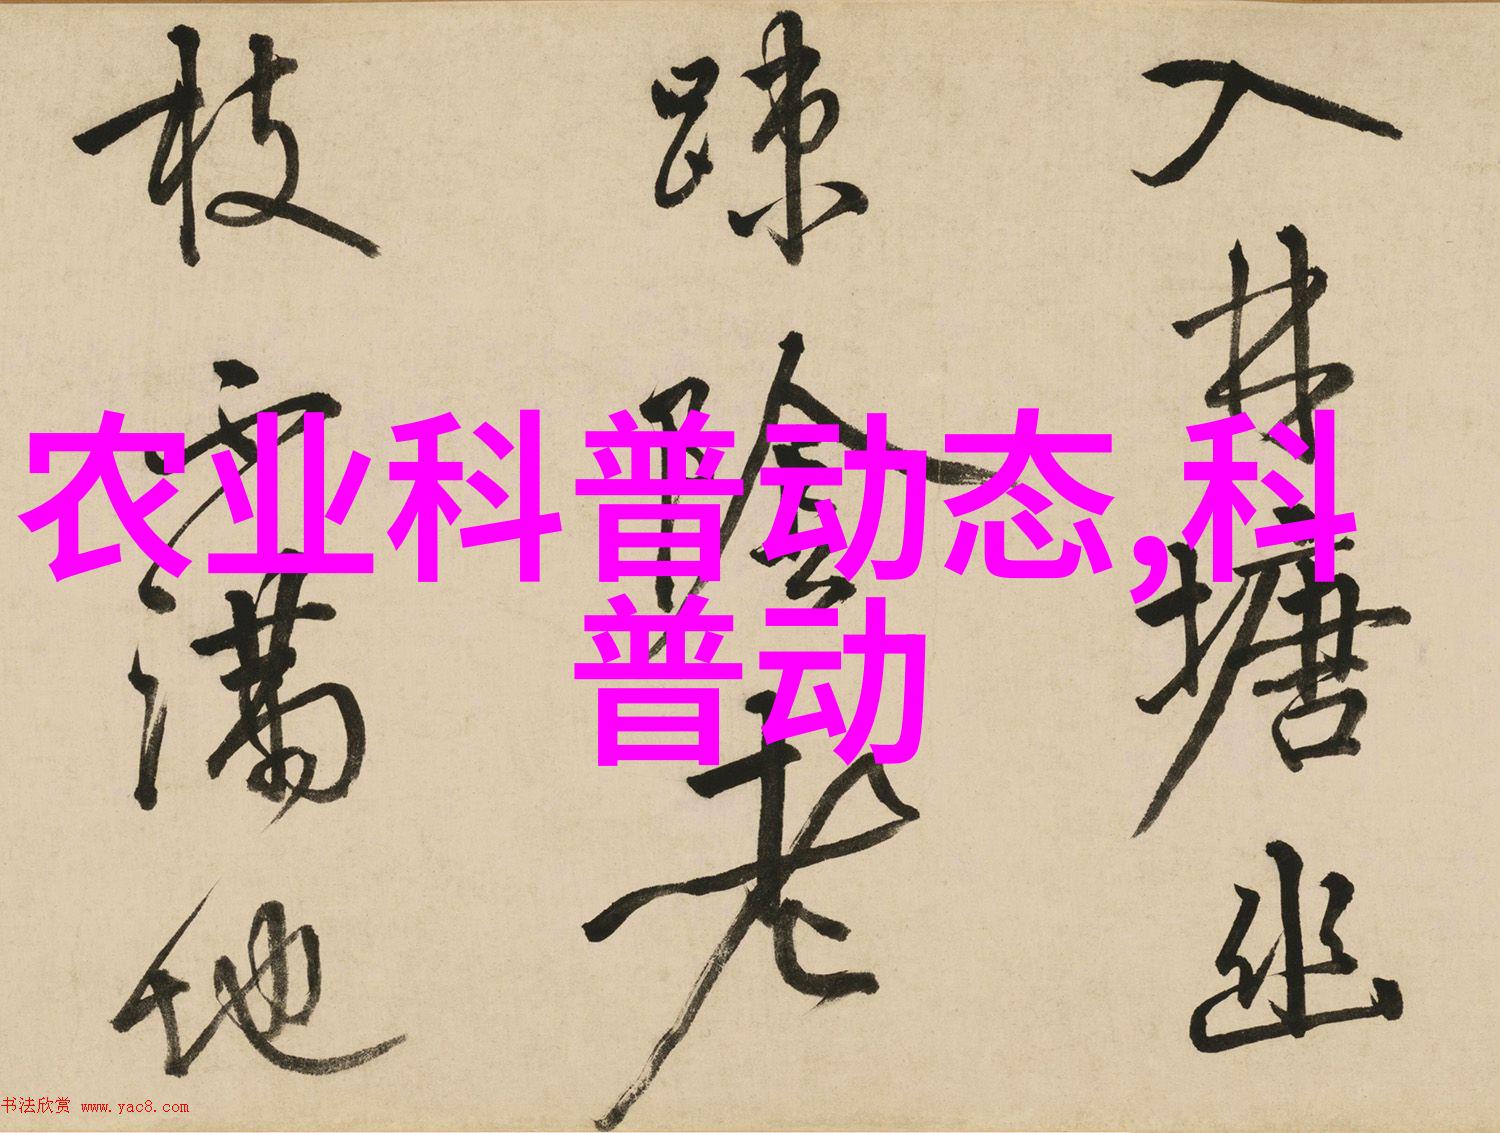 农业科普动态,科
普动
入林塘幽
踈陰老
枝满地
书法欣赏 www.yac8.com